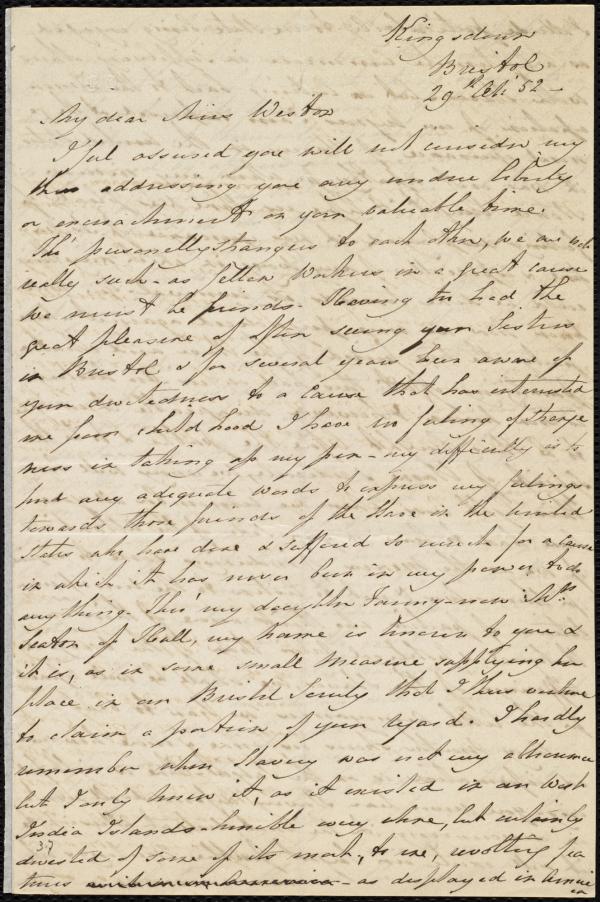 Kingsdown
Bristol
29th Feb' 52 -
My dear Miss Weston
I feel assured you will not consider my
thus addressing you any undue liberty
or encroachment on your valuable time.
Tho' personally strangers to each other, we are not
really such - as fellow workers in a great cause
we must be friends - Having too had the
great pleasure of often seeing your Sisters
in Bristol & for several years been aware of
your devotedness to a cause that has interested
me from childhood I have no feeling of strange
ness in taking up my pen - my difficulty is to
put any adequate words to express my feelings
towards those friends of the Slave in the United
States who have done & suffered so much for a cause
in which it has never been in my power to do
anything. Thro' my daughter Fanny - now Mrs
Seaton of Hull, my name is known to you &
it is, as in some small measure supplying her
place in our Bristol Society that I thus venture
to claim a portion of your regard. I hardly
remember when Slavery was not my abhorrence
but I only knew it, as it existed in our West
India Islands - horrible every where, but certainly
37
divested of some of its most, to me, revolting fea
tures - as displayed in Americ